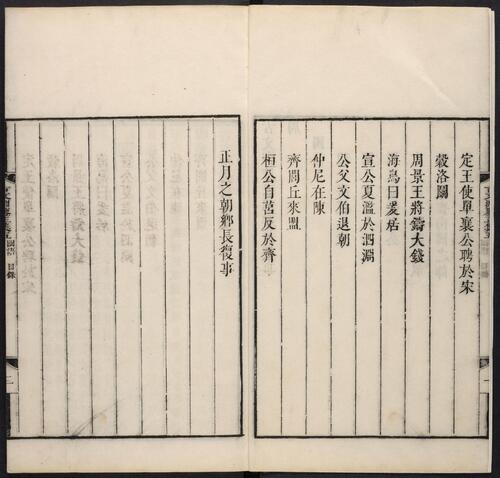 定王使單襄公聘於宋
穀洛鬭
周景王將鑄大錢
海鳥曰爰居
宣公夏濫於泗淵
公父文伯退朝
仲尼在陳
齊閭丘來盟
桓公自莒反於齊
正月之朝鄉長復事
國語 目錄
二